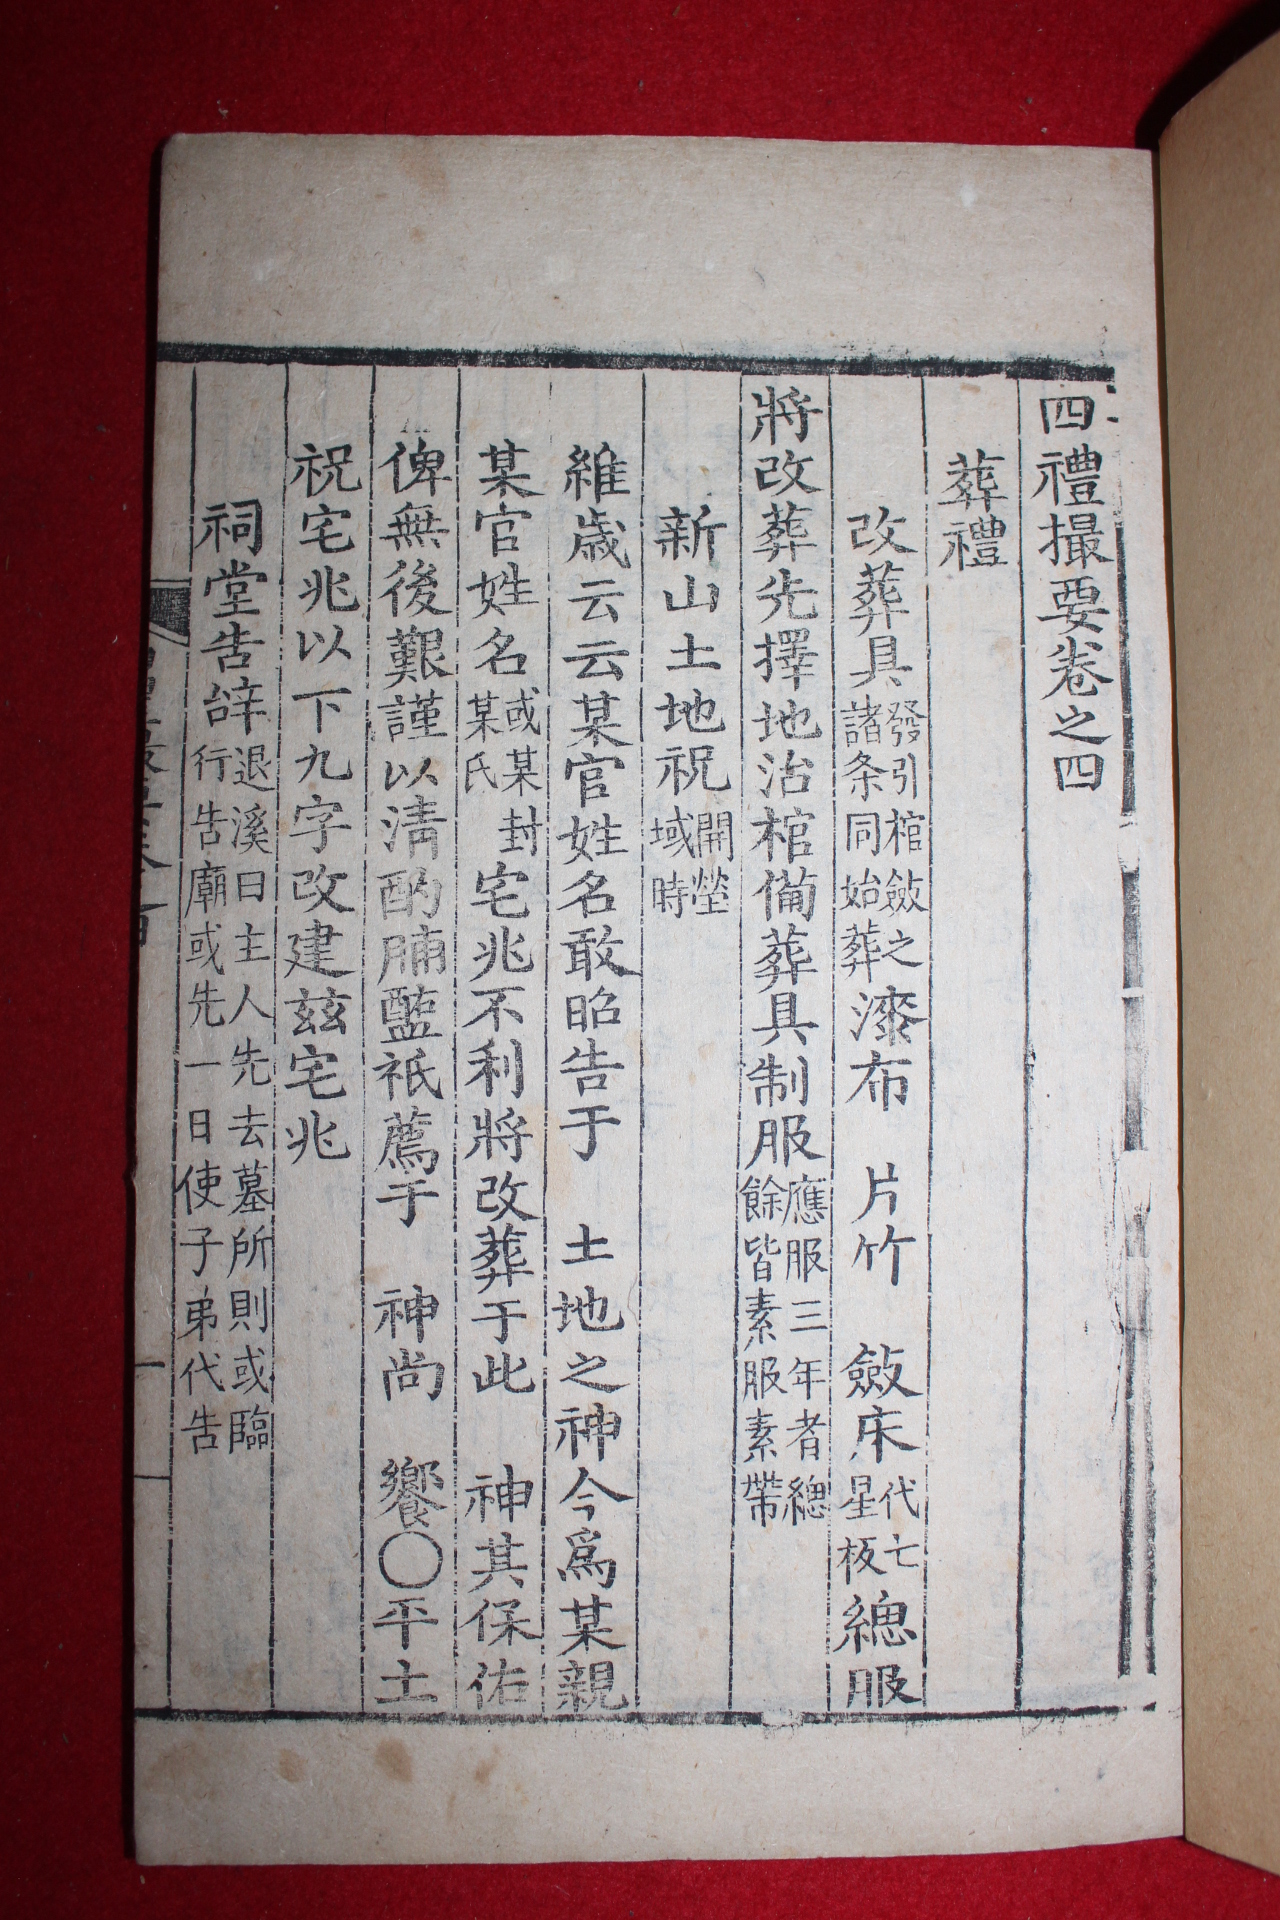 四禮撮要卷之四
葬禮
改葬具發引棺斂之諸条同始葬漆布 片竹 斂床代七星板總服
將改葬先擇地治棺備葬具制服應服三年者總餘皆素服素帶
新山土地祝開塋域時
維歲云云某官姓名敢昭告于 土地之神今爲某親
某官姓名或某封某氏宅兆不利將改葬于此 神其保佑
俾無後艱謹以淸酌脯醢祗薦于 神尚 饗〇平土
祝宅兆以下九字改建玆宅兆
祠堂告辝退溪曰主人先去墓所則或臨行告廟或先一日使子弟代告